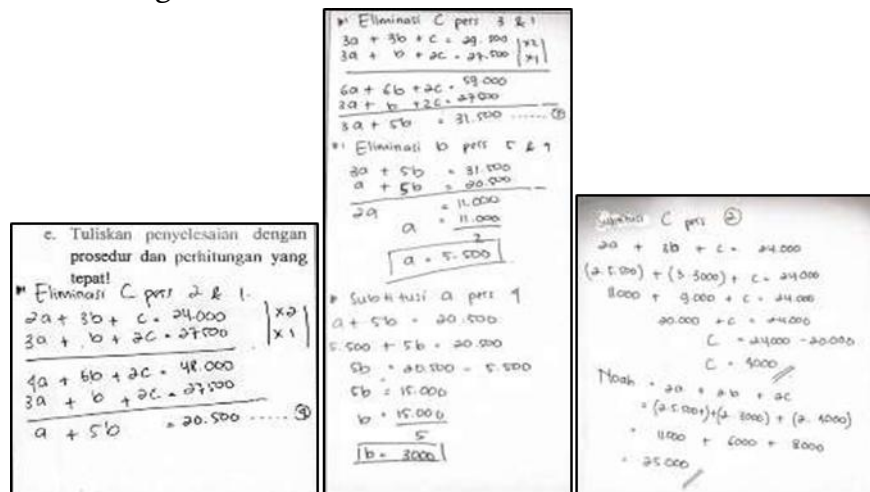 e. Tuliskan penyelesaian dengan
prosedur dan perhitungan yang
tepat!
Eliminasi C pers 2 & 1.
2a + 3b + c = 24.000 | x2 |
3a + b + 2c = 27500 | x1 |
4a + 6b + 2c = 48.000
3a + b + 2c = 27500
a + 5b = 20.500 ...... ④
Eliminasi C pers 3 & 1
3a + 3b + c = 29.500 | x2 |
3a + b + 2c = 27.500 | x1 |
6a + 6b + 2c = 59.000
3a + b + 2c = 27500
3a + 5b = 31.500 ......
Eliminasi b pers 5 & 4
3a + 5b = 31.500
a + 5b = 20.500
2a = 11.000
a = 11.000
2
a = 5.500
Subtitusi a pers 4
a + 5b = 20.500
5.500 + 5b = 20.500
5b = 20.500 - 5.500
5b = 15.000
b = 15.000
5
b = 3000
C pers ②
2a + 3b + c = 24.000
(2.5.500) + (3.3000) + c = 24000
11000 + 9.000 + c = 24.000
20.000 + c = 24000
C = 24000 - 20.000
C = 4000
Noah = 2a + 2b + 2c
= (2.5.500) + (2.3000) + (2.4000)
= 11000 + 6000 + 8000
= 25.000